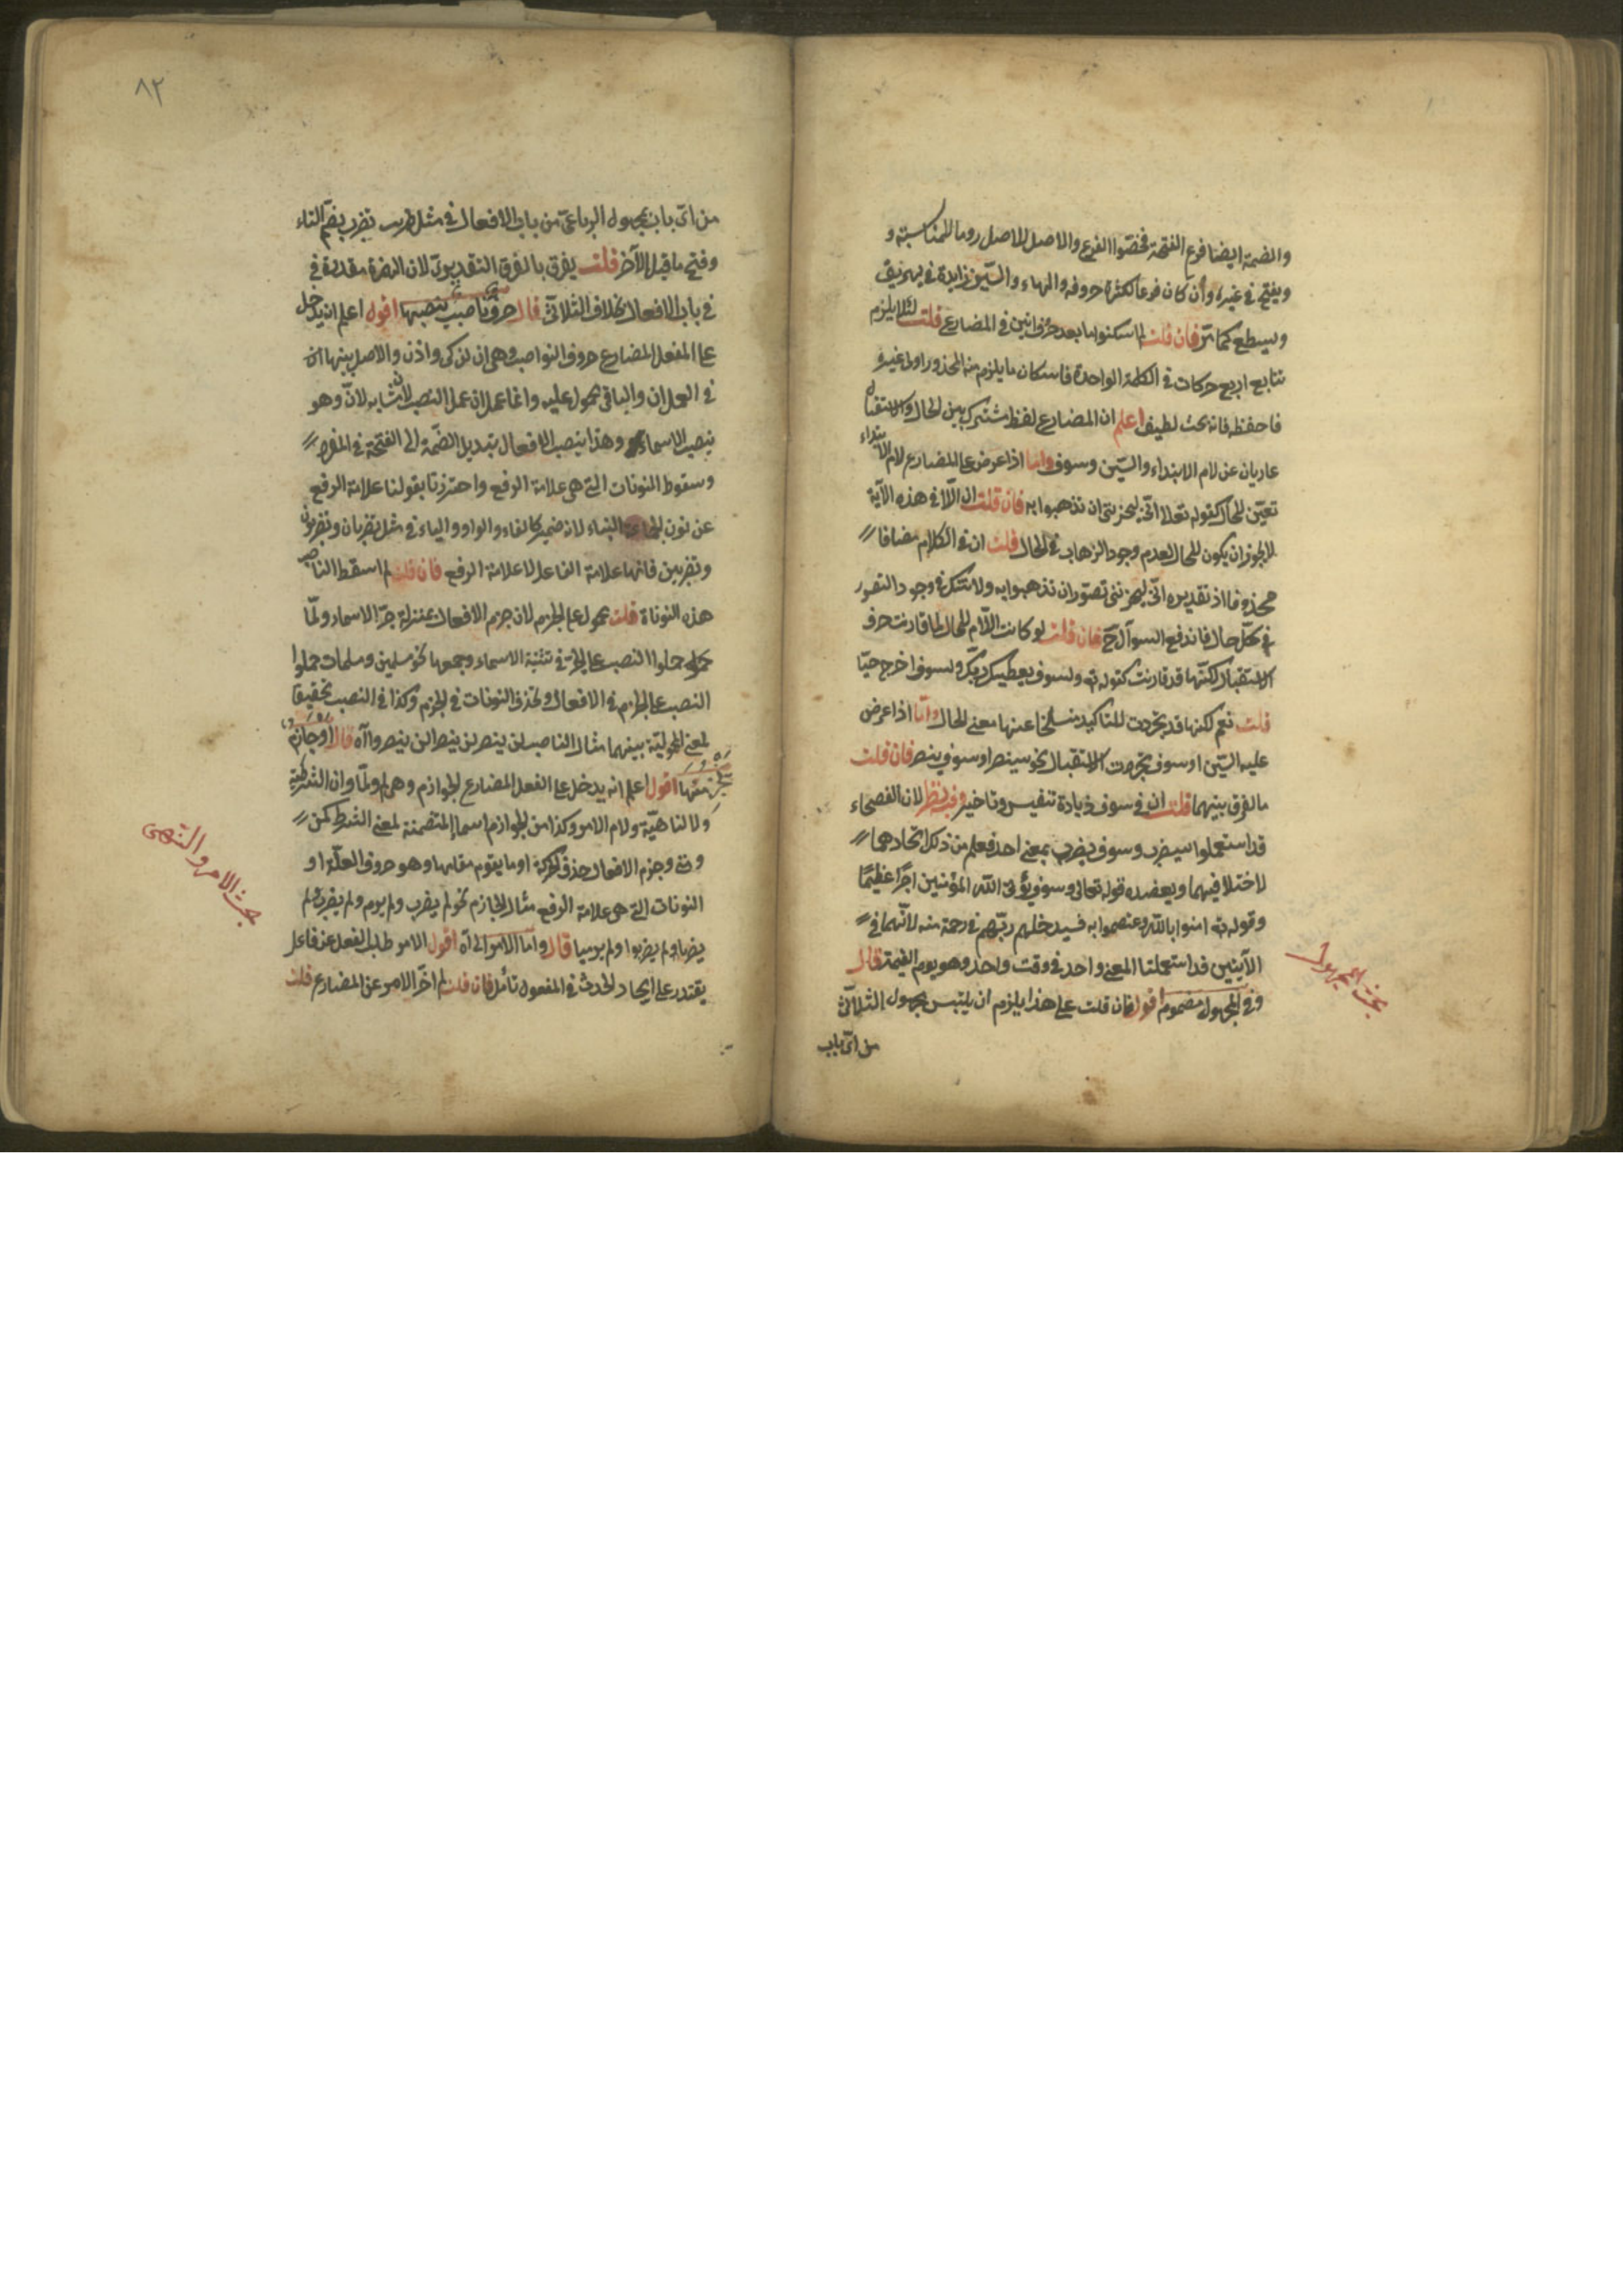 والضمة ايضا فرع الفتحة فخصّوا الفرع والاصل للاصل روما للمناسبة و
ويفتح في غيره وان كان فرعا لكثرة حروفه والهاء والسّين زايدة في يهريق
ويسطع كما مرّ فان قلت لم اسكنوا ما بعد حرف اتين في المضارع قلت لئلا يلزم
تتابع اربع حركات في الكلمة الواحدة فاسكان ما يلزم منه المحذور اولى غيره
فاحفظه فانه بحث لطيف اعلم ان المضارع لفظ مشترك بين الحال والاستقبال
عاريان عن لام الابتداء والسّين وسوف واما اذا عرض على المضارع لام الابتداء
تعيّن للحال كقوله تعالى انّي ليحزنني ان تذهبوا به فان قلت ان اللّا في هذه الآية
لا يجوز ان يكون للحال لعدم وجود الزهاب في الحال قلت ان في الكلام مضافا
محذوفا اذ تقديره انّي ليحزنني تصوّر ان تذهبوا به ولا شك في وجود التصور
في كلّ حال فاندفع السوآل ح فان قلت لو كانت اللّام للحال لما قارنت حرف
الاستقبال لكنّها قد قارنت كقوله تع ولسوف يعطيك ربّك ولسوف اخرج حيّا
قلت نعم لكنها قد تجردت للتاكيد منسلخا عنها معنى الحال وامّا اذا عرض
عليه السّين او سوف تجردت الاستقبال نحو سينصر او سوف ينصر فان قلت
ما الفرق بينهما قلت ان في سوف زيادة تنفيس وتاخير وفيه نظر لان الفصحاء
قد استعملوا سيضرب وسوف يضرب بمعنى احد فعلم من ذلك اتحادهما
لاختلا فيهما ويعضده قوله تعالى وسوف يؤتى الله المؤمنين اجرًا عظيمًا
وقوله تع امنوا بالله وعتصموا به فسيدخلهم ربّهم في رحمة منه لانّهما في
الآيتين قد استعملتا المعنى واحد في وقت واحد وهو يوم القيمة قال
وفي المجهول مضموم اقول فان قلت على هذا يلزم ان يلتبس مجهول الثلاثّي
من اىّ باب
بحث المجهول
٨٢
من اىّ باب بمجهول الرباعىّ من باب الافعال في مثل يضرب بضمّ التاء
وفتح ما قبل الآخر قلت يفرق بالفرق التقديرىّ لان الهمزة مقدرة في
في باب الافعال بخلاف الثلاثّي قال حروف ناصب ينصبها اقول اعلم انه يدخل
على الفعل المضارع حروف النواصب وهي ان لن كى واذن والاصل بينها ان
في العمل ان والباقى محمول عليه وانما عمل ان عمل النصب لان شابه لانّ وهو
ينصب الاسماء وهذا ينصب الافعال بتبديل الضّمة الى الفتحة في المفرد
وسقوط النونات التي هي علامة الرفع واحترزنا بقولنا علامة الرفع
عن نون الجماعة النساء لانه ضمير كالفاء والواو والياء في مثل تضربان وتضربون
وتضربين فانها علامة الفاعل لا علامة الرفع فان قلت لم اسقط الناصب
هذه النوناة قلت محمول على الجزم لان جزم الافعال بمنزلة جرّ الاسماء ولمّا
حملوا النصب على الجرّ في تثنية الاسماء وجمعها نحو مسلمين ومسلمات حملوا
النصب على الجزم في الافعال وتحذف النونات في الجزم وكذا في النصب تحقيقا
لمعنى المحموليّة بينهما مثال الناصب لن ينصر لن ينصرا لن ينصروا آه قال او جازم
تجزمها اقول اعلم انه يدخل على الفعل المضارع الجوازم وهى لم ولمّا وان الشرطيّة
ولا لناهيّة ولام الامر وكذا من الجوازم اسماء المتضمّنة لمعنى الشرط كمن
ومتى وجزم الافعال حذف الحركة او ما يقوم مقامها وهو حروف العلّة او
النونات التي هي علامة الرفع مثال الجازم نحو لم يضرب ولم يرم ولم يضربن لم
يضربا ولم يضربوا ولم يرميا قال وامّا الامر الى آه اقول الامر طلب الفعل عن فاعل
يقتدر على ايجاد الحدث في المفعول تأمل فان قلت لم اخّر الامر عن المضارع قلت
بحث الامر والنّهى